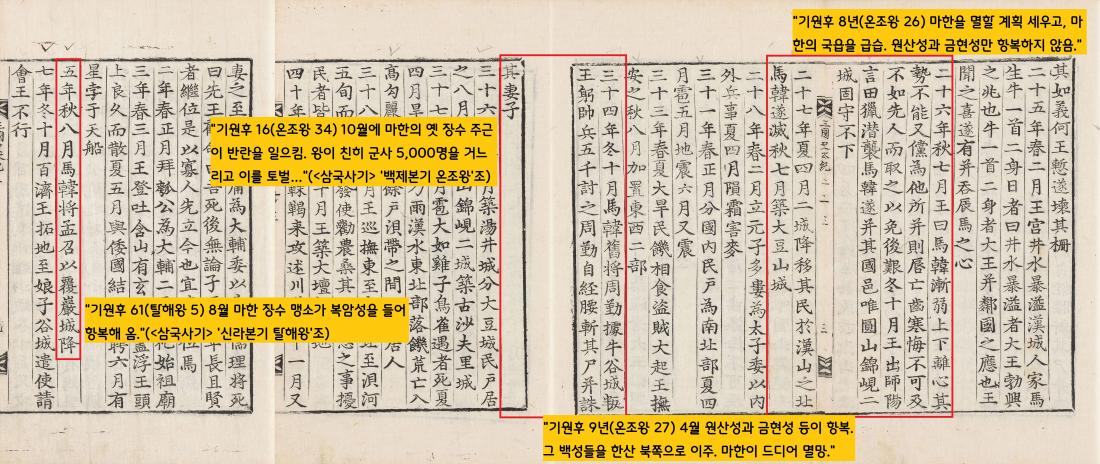 "기원후 8년(온조왕 26) 마한을 멸할 계획 세우고, 마
한의 국읍을 급습. 원산성과 금현성만 항복하지 않음."
其如義何王慙遂壞其柵
二十五年春二月王宮井水暴溢漢城人家馬
生牛一首二身日者曰井水暴溢者大王勃興
之兆也牛一首二身者大王并鄰國之應也王
聞之喜遂有并吞辰馬之心
二十六年秋七月王曰馬韓漸弱上下離心其
勢不能又儻為他所并則唇亡齒寒悔不可及
不如先人而取之以免後艱冬十月王出師陽
言田獵潜襲馬韓遂并其國邑唯圓山錦峴二
城固守不下
二十七年夏四月二城降移其民於漢山之北
馬韓遂滅秋七月築大豆山城
二十八年春二月立元子多婁為太子委以内
外兵事夏四月隕霜害麥
三十一年春正月分國内民戶為南北部夏四
月雹五月地震六月又震
三十三年春夏大旱民饑相食盜賊大起王撫
安之秋八月加置東西二部
三十四年冬十月馬韓舊將周勤據牛谷城叛
王躬帥兵五千討之周勤自經腰斬其尸并誅
"기원후 9년(온조왕 27) 4월 원산성과 금현성 등이 항복.
그 백성들을 한산 북쪽으로 이주. 마한이 드디어 멸망."
其妻子
三十六 月築湯井城分大豆城民戶居
之八月 山錦峴二城築古沙夫里城
三十七 月雹大如雞子鳥雀遇者死夏
四月旱 雨漢水東北部落饑荒亡入
高句麗 餘戶浿帶之間 居人
三十八 月王巡撫東至 至浿河
五旬而 發使勸農桑其 急之事擾
民者皆 十月王築大壇 地
四十年 靺鞨來攻述川 十一月又
"기원후 16(온조왕 34) 10월에 마한의 옛 장수 주근
이 반란을 일으킴. 왕이 친히 군사 5,000명을 거느
리고 이를 토벌..."(<삼국사기> '백제본기 온조왕'조)
妻之至 南為大輔委以 理將死
曰先王 吾死後無論子 年長且賢
者繼位是 以寡人先立今也宜 位焉
二年春正月拜瓠公為大輔二 始祖廟
三年春三月王登吐含山有玄 蓋浮王頭
上良久而散夏五月與倭國結 聘六月有
星孛于天船
五年秋八月馬韓將孟召以覆巖城降
七年冬十月百濟王拓地至娘子谷城遣使請
會王不行
"기원후 61(탈해왕 5) 8월 마한 장수 맹소가 복암성을 들어
항복해 옴."(<삼국사기> '신라본기 탈해왕'조)